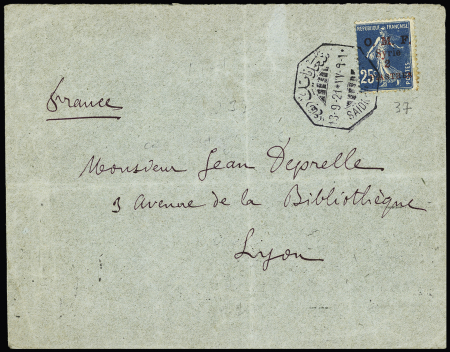 REPUBLIQUE FRANÇAISE
O. M. F.
25
POSTES
3-9-21
SAIDA
France
37
Monsieur Jean Deprelle
3 Avenue de la Bibliothèque
Lyon